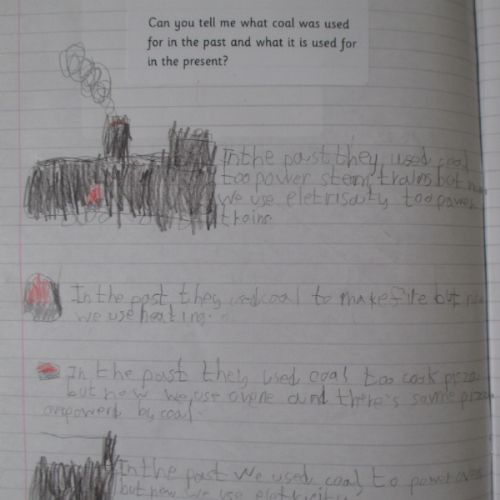 Can you tell me what coal was used
for in the past and what it is used for
in the present?
In the past they used coal
too power stem trains but
we use eletrisaty too power
trains
In the past they used coal to make fire but
we use heating.
In the past they used coal too cook pizza
but now we use ovens and there's some
powerd by coal.
In the past we used coal to power
but now we use